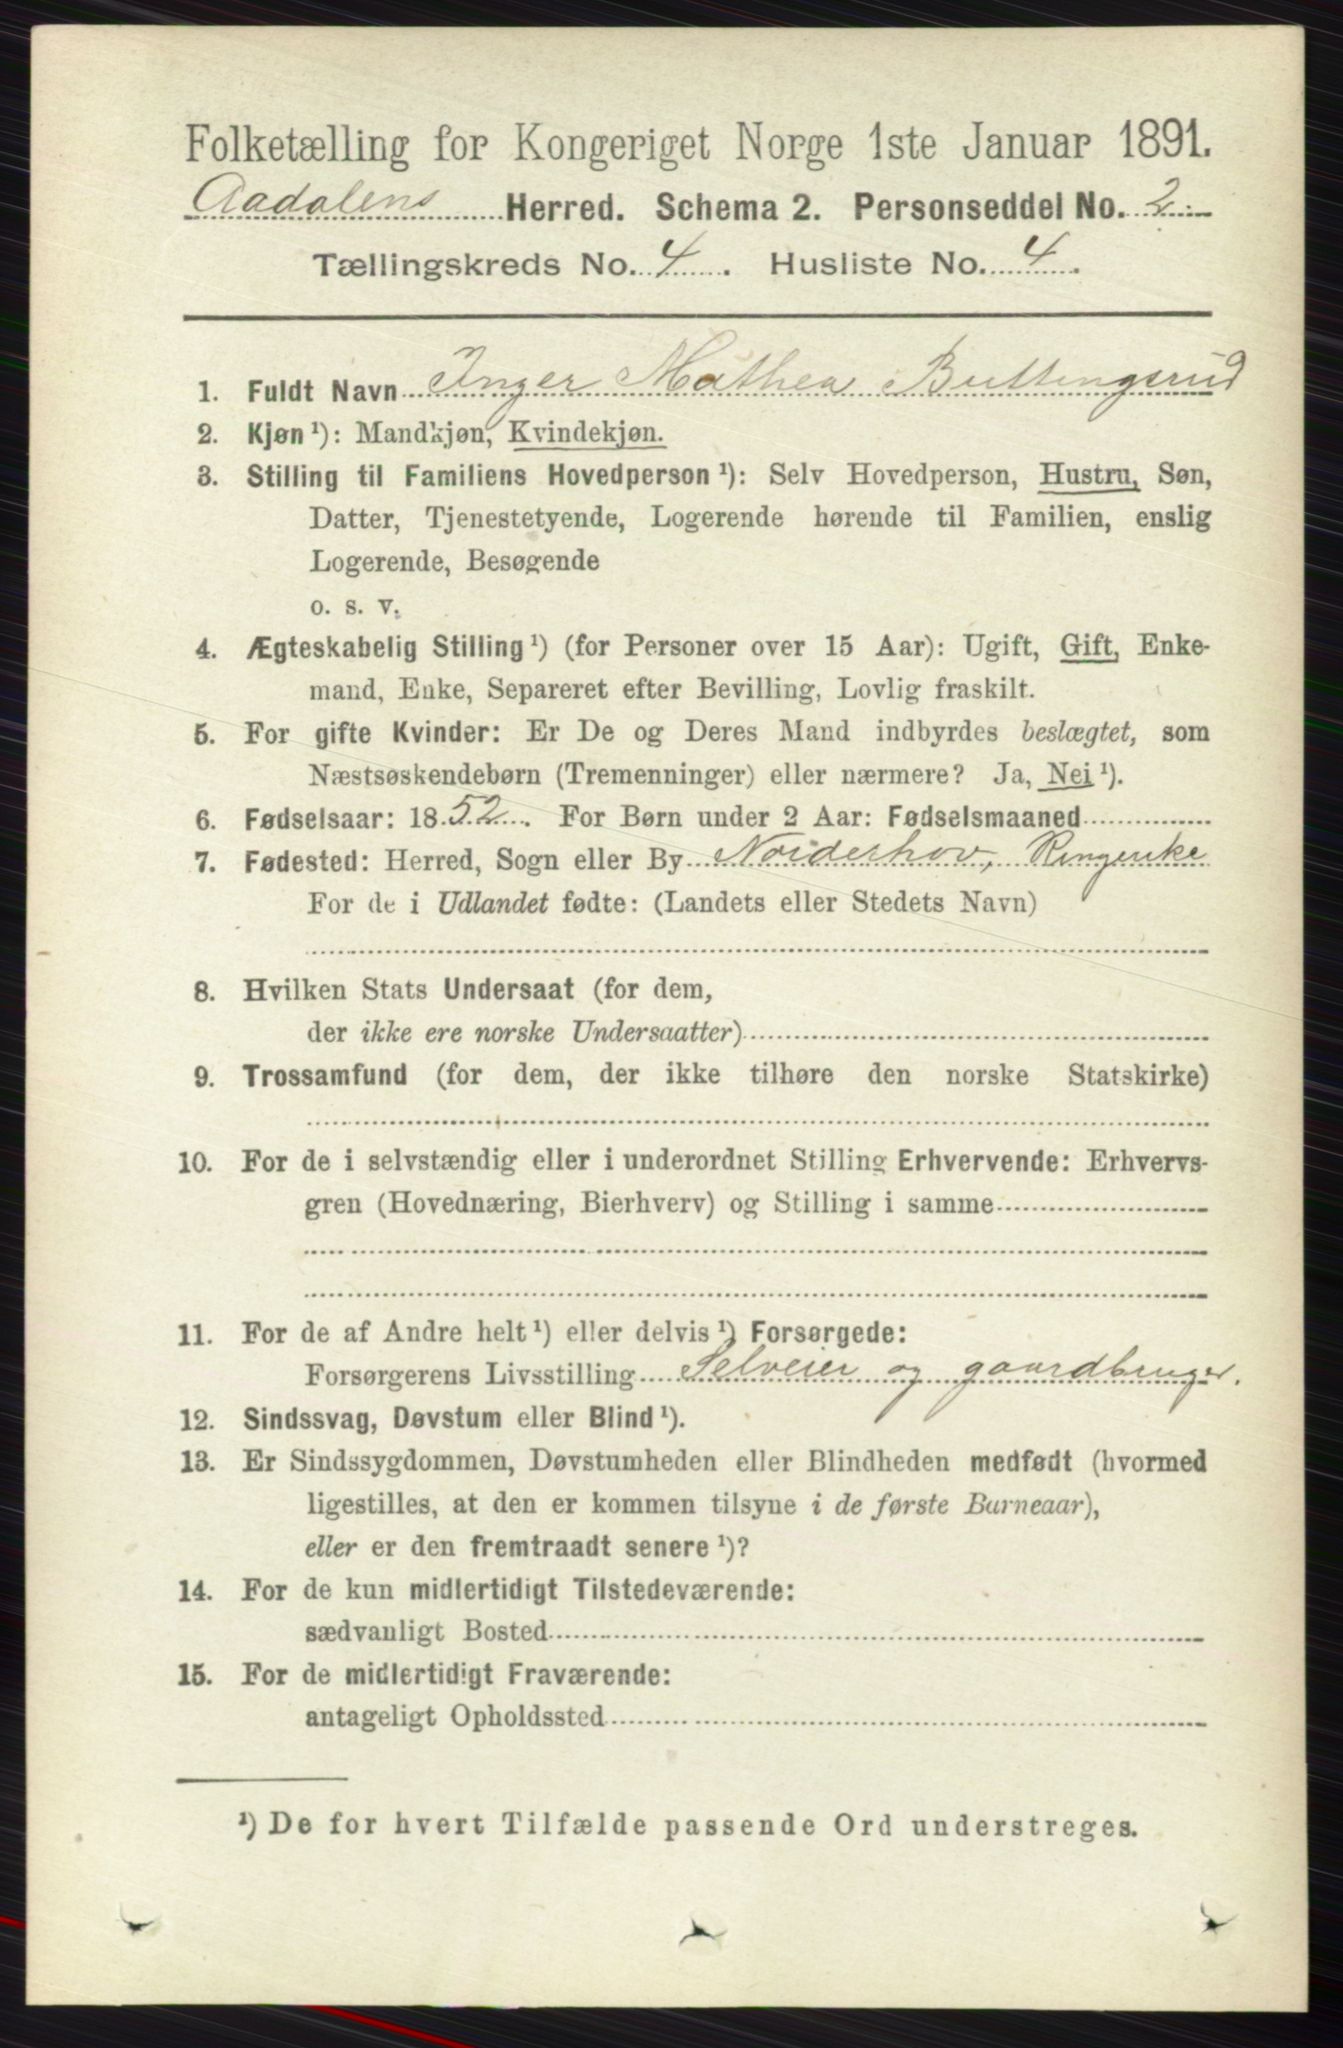 Folketælling for Kongeriget Norge 1ste Januar 1891.
Aadalens Herred. Schema 2. Personseddel No. 2
Tællingskreds No. 4. Husliste No. 4.
1. Fuldt Navn Inger Mathea Buttingsrud
2. Kjøn¹): Mandkjøn, Kvindekjøn.
3. Stilling til Familiens Hovedperson¹): Selv Hovedperson, Hustru, Søn,
Datter, Tjenestetyende, Logerende hørende til Familien, enslig
Logerende, Besøgende
o. s. v.
4. Ægteskabelig Stilling¹) (for Personer over 15 Aar): Ugift, Gift, Enke-
mand, Enke, Separeret efter Bevilling, Lovlig fraskilt.
5. For gifte Kvinder: Er De og Deres Mand indbyrdes beslægtet, som
Næstsøskendebørn (Tremenninger) eller nærmere? Ja, Nei¹).
6. Fødselsaar: 1852. For Børn under 2 Aar: Fødselsmaaned
7. Fødested: Herred, Sogn eller By Norderhov, Ringerike
For de i Udlandet fødte: (Landets eller Stedets Navn)
8. Hvilken Stats Undersaat (for dem,
der ikke ere norske Undersaatter)
9. Trossamfund (for dem, der ikke tilhøre den norske Statskirke)
10. For de i selvstændig eller i underordnet Stilling Erhvervende: Erhvervs-
gren (Hovednæring, Bierhverv) og Stilling i samme
11. For de af Andre helt¹) eller delvis¹) Forsørgede:
Forsørgerens Livsstilling Selveier og gaardbruger.
12. Sindssvag, Døvstum eller Blind¹).
13. Er Sindssygdommen, Døvstumheden eller Blindheden medfødt (hvormed
ligestilles, at den er kommen tilsyne i de første Barneaar),
eller er den fremtraadt senere¹)?
14. For de kun midlertidigt Tilstedeværende:
sædvanligt Bosted
15. For de midlertidigt Fraværende:
antageligt Opholdssted
¹) De for hvert Tilfælde passende Ord understreges.